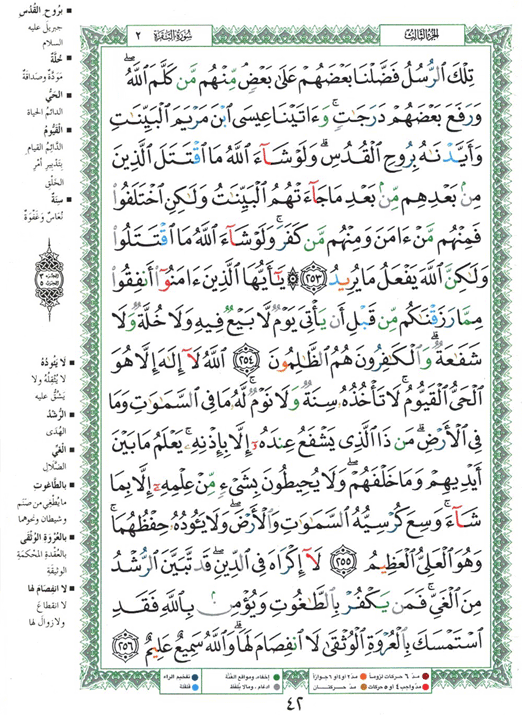 الجزء الثالث
سورة البقرة
٢
تِلْكَ ٱلرُّسُلُ فَضَّلْنَا بَعْضَهُمْ عَلَىٰ بَعْضٍ مِّنْهُم مَّن كَلَّمَ ٱللَّهُ ۖ
وَرَفَعَ بَعْضَهُمْ دَرَجَٰتٍ ۚ وَءَاتَيْنَا عِيسَى ٱبْنَ مَرْيَمَ ٱلْبَيِّنَٰتِ
وَأَيَّدْنَٰهُ بِرُوحِ ٱلْقُدُسِ ۗ وَلَوْ شَآءَ ٱللَّهُ مَا ٱقْتَتَلَ ٱلَّذِينَ
مِنۢ بَعْدِهِم مِّنۢ بَعْدِ مَا جَآءَتْهُمُ ٱلْبَيِّنَٰتُ وَلَٰكِنِ ٱخْتَلَفُوا۟
فَمِنْهُم مَّنْ ءَامَنَ وَمِنْهُم مَّن كَفَرَ ۚ وَلَوْ شَآءَ ٱللَّهُ مَا ٱقْتَتَلُوا۟
وَلَٰكِنَّ ٱللَّهَ يَفْعَلُ مَا يُرِيدُ ٢٥٣ يَٰٓأَيُّهَا ٱلَّذِينَ ءَامَنُوٓا۟ أَنفِقُوا۟
مِمَّا رَزَقْنَٰكُم مِّن قَبْلِ أَن يَأْتِىَ يَوْمٌ لَّا بَيْعٌ فِيهِ وَلَا خُلَّةٌ وَلَا
شَفَٰعَةٌ ۗ وَٱلْكَٰفِرُونَ هُمُ ٱلظَّٰلِمُونَ ٢٥٤ ٱللَّهُ لَآ إِلَٰهَ إِلَّا هُوَ
ٱلْحَىُّ ٱلْقَيُّومُ ۚ لَا تَأْخُذُهُۥ سِنَةٌ وَلَا نَوْمٌ ۚ لَّهُۥ مَا فِى ٱلسَّمَٰوَٰتِ وَمَا
فِى ٱلْأَرْضِ ۗ مَن ذَا ٱلَّذِى يَشْفَعُ عِندَهُۥٓ إِلَّا بِإِذْنِهِۦ ۚ يَعْلَمُ مَا بَيْنَ
أَيْدِيهِمْ وَمَا خَلْفَهُمْ ۖ وَلَا يُحِيطُونَ بِشَىْءٍ مِّنْ عِلْمِهِۦٓ إِلَّا بِمَا
شَآءَ ۚ وَسِعَ كُرْسِيُّهُ ٱلسَّمَٰوَٰتِ وَٱلْأَرْضَ ۖ وَلَا يَـُٔودُهُۥ حِفْظُهُمَا ۚ
وَهُوَ ٱلْعَلِىُّ ٱلْعَظِيمُ ٢٥٥ لَآ إِكْرَاهَ فِى ٱلدِّينِ ۖ قَد تَّبَيَّنَ ٱلرُّشْدُ
مِنَ ٱلْغَىِّ ۚ فَمَن يَكْفُرْ بِٱلطَّٰغُوتِ وَيُؤْمِنۢ بِٱللَّهِ فَقَدِ
ٱسْتَمْسَكَ بِٱلْعُرْوَةِ ٱلْوُثْقَىٰ لَا ٱنفِصَامَ لَهَا ۗ وَٱللَّهُ سَمِيعٌ عَلِيمٌ ٢٥٦
بِرُوحِ القُدُسِ
جبريلَ عليه
السلام
خُلَّةٌ
مَوَدَّةٌ وصَداقَةٌ
الحَيُّ
الدائمُ الحياة
القَيُّومُ
الدَّائمُ القيام
بتدبيرِ أمْرِ
الخلْقِ
سِنَةٌ
نُعَاسٌ وغَفْوَةٌ
لا يَئُودُهُ
لا يُثْقِلُهُ ولا
يَشُقُّ عليه
الرُّشْدُ
الهُدَى
الغَيِّ
الضَّلالِ
بالطَّاغوتِ
ما يُطغي من صَنَمٍ
وشيطانٍ ونحوهما
بالعُرْوَةِ الوُثْقَى
بالعُقدةِ المُحكَمةِ
الوثيقةِ
لا انفِصامَ لها
لا انقطاعَ
ولا زوالَ لها
مدّ ٦ حركات لزوماً
مدّ ٢ أو ٤ أو ٦ جوازاً
إخفاء، ومواقع الغُنَّة
تفخيم الراء
مدّ واجب ٤ أو ٥ حركات
مدّ حركتان
ادغام، وما لا يُلفظ
قلقلة
٤٢